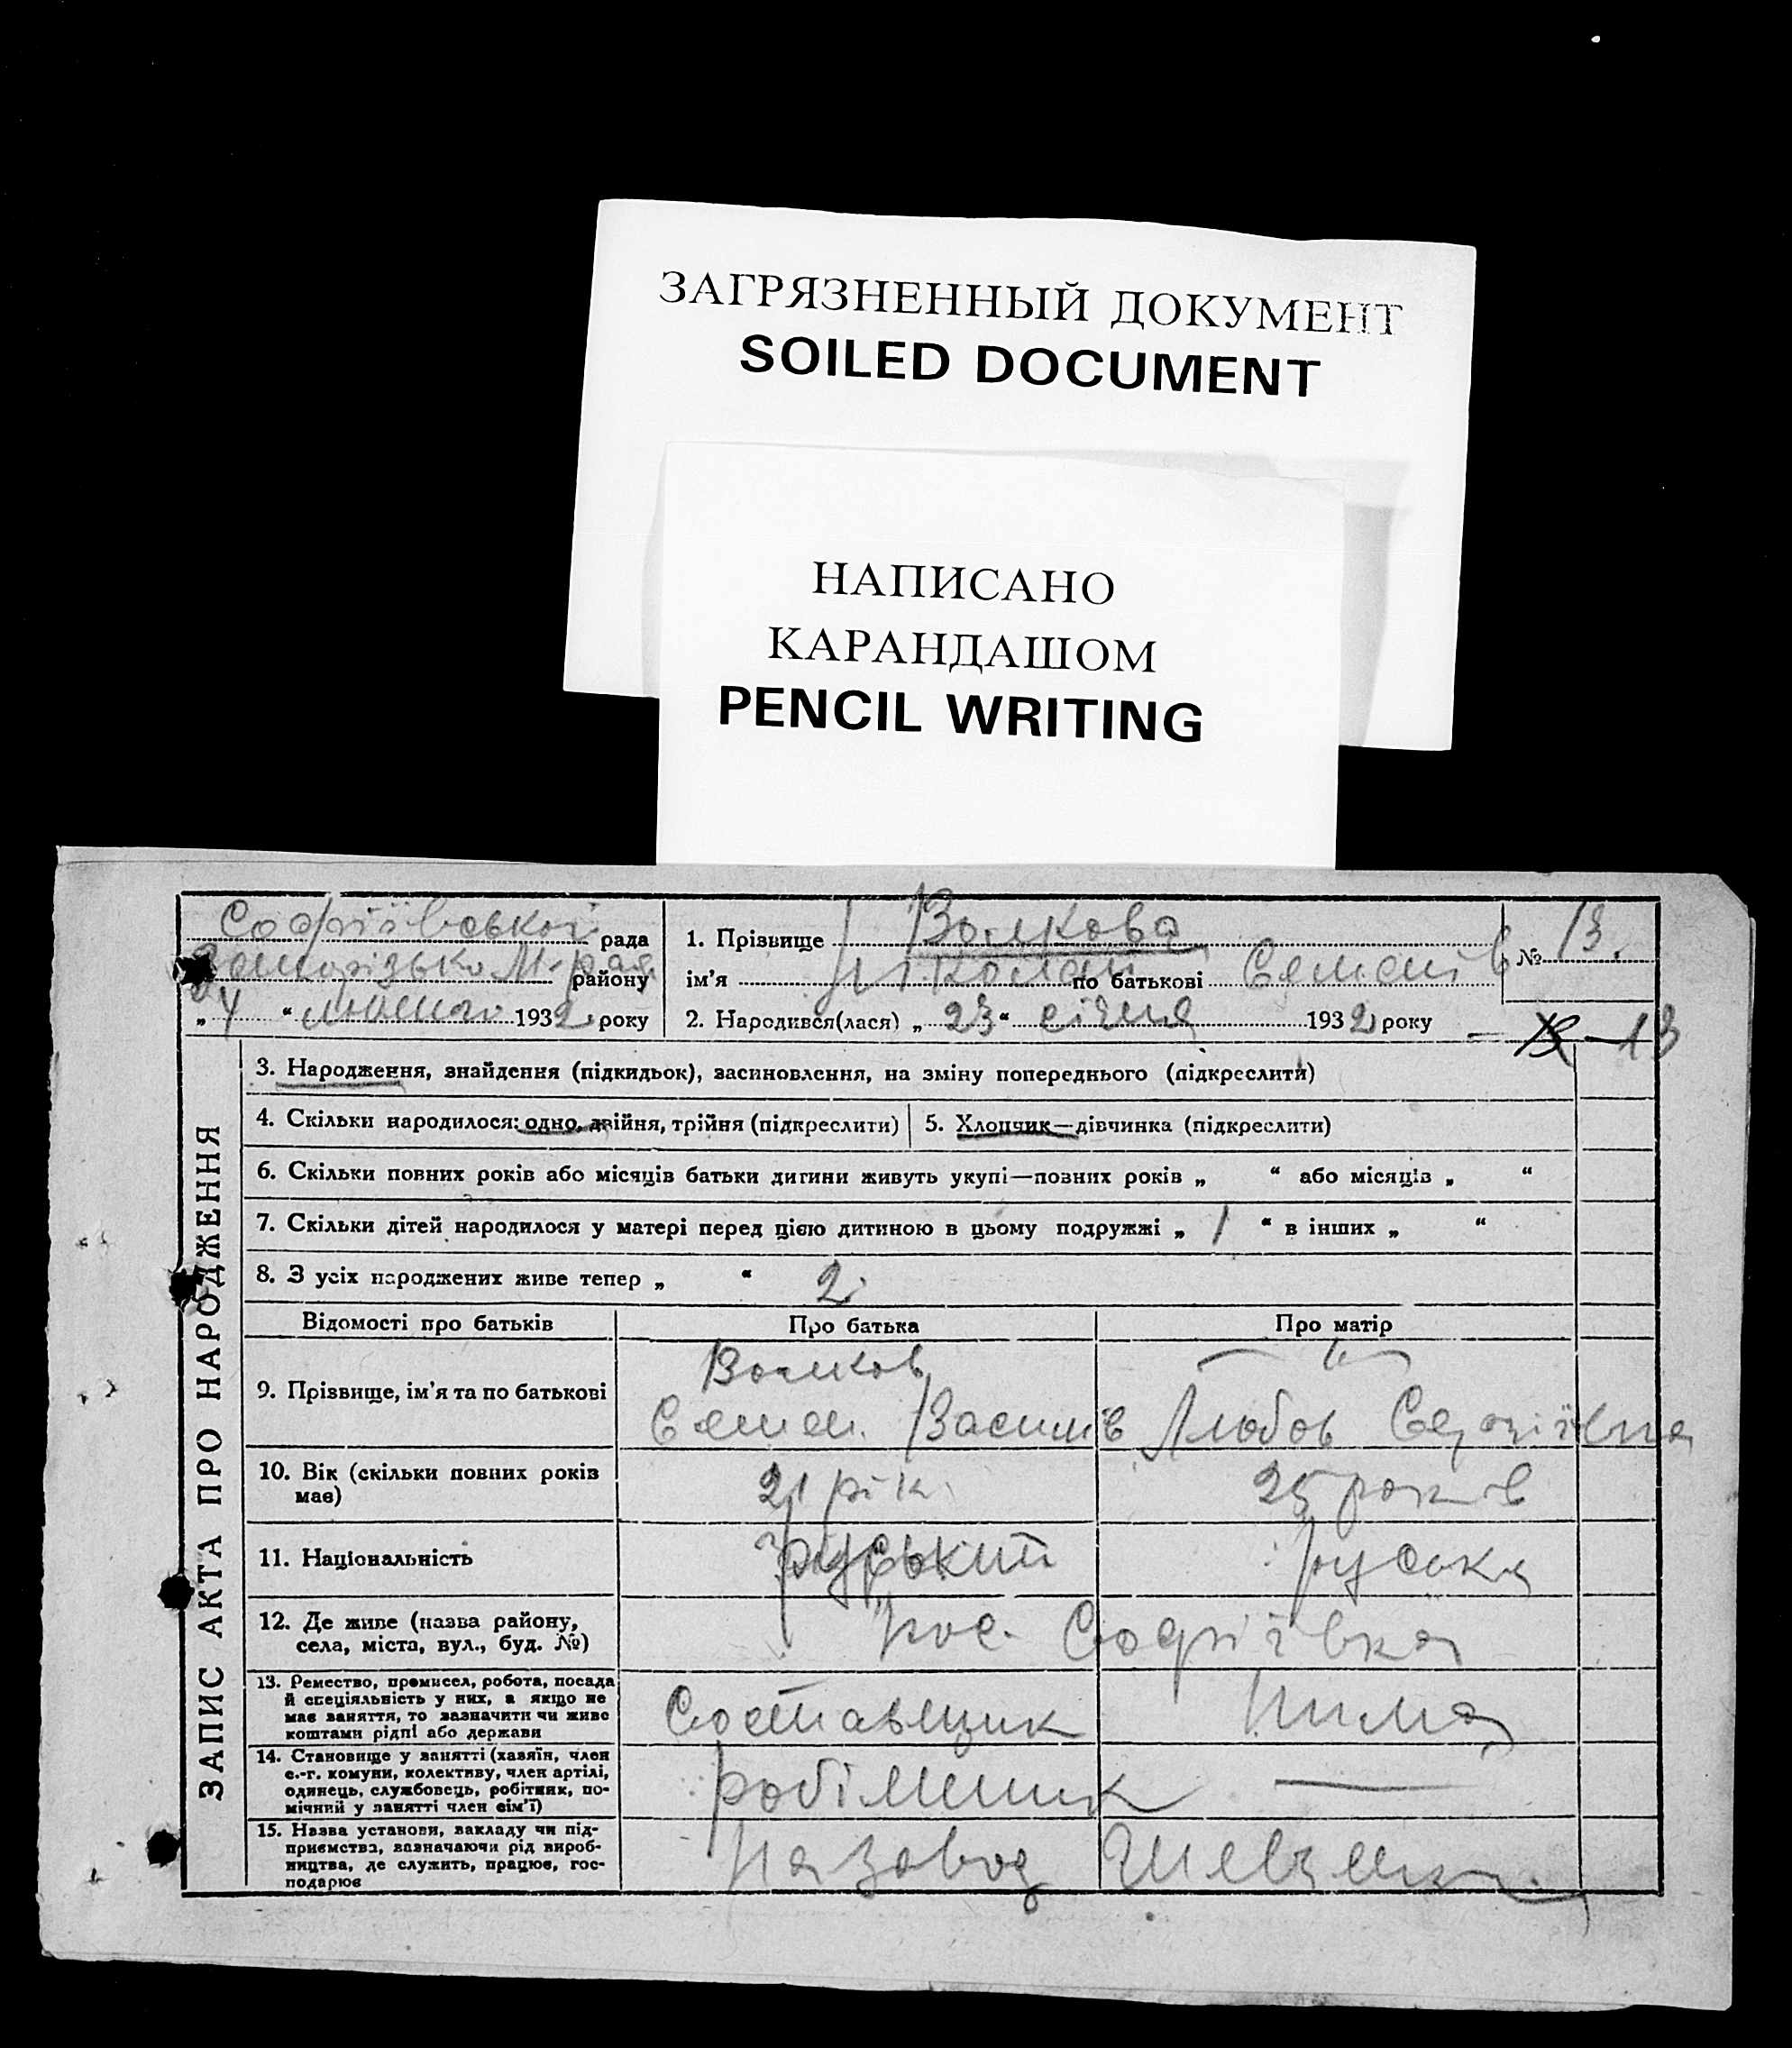 ЗАГРЯЗНЕННЫЙ ДОКУМЕНТ
SOILED DOCUMENT
НАПИСАНО
КАРАНДАШОМ
PENCIL WRITING
Софіївської рада
району
„ 4 “ лютого 1932 року
1. Прізвище Волкова
ім’я Школай по батькові Семенів
2. Народився(лася) „ 23 “ січня 1932 року
№ 13.
13
ЗАПИС АКТА ПРО НАРОДЖЕННЯ
3. Народження, знайдення (підкидьок), засиновлення, на зміну попереднього (підкреслити)
4. Скільки народилося: одно, двійня, трійня (підкреслити)
5. Хлопчик—дівчинка (підкреслити)
6. Скільки повних років або місяців батьки дитини живуть укупі—повних років „ “ або місяців „ “
7. Скільки дітей народилося у матері перед цією дитиною в цьому подружжі „ 1 “ в інших „ “
8. З усіх народжених живе тепер „ “ 2
Відомості про батьків Про батька Про матір
9. Прізвище, ім’я та по батькові
Волков
Семен Василів Любов Сергіївна
10. Вік (скільки повних років
має)
21 рік 25 років
11. Національність руський руська
12. Де живе (назва району,
села, міста, вул., буд. №)
пос. Софіївка
13. Ремество, промисел, робота, посада
й спеціяльність у них, а якщо не
має заняття, то зазначити чи живе
коштами рідні або держави
Составщик Нима
14. Становище у занятті (хазяїн, член
с.-г. комуни, колективу, член артілі,
одинець, службовець, робітник, по-
мічний у занятті член сім’ї)
робітник —
15. Назва установи, закладу чи під-
приємства, зазначаючи рід вироб-
ництва, де служить, працює, гос-
подарює
На завод Шевченк